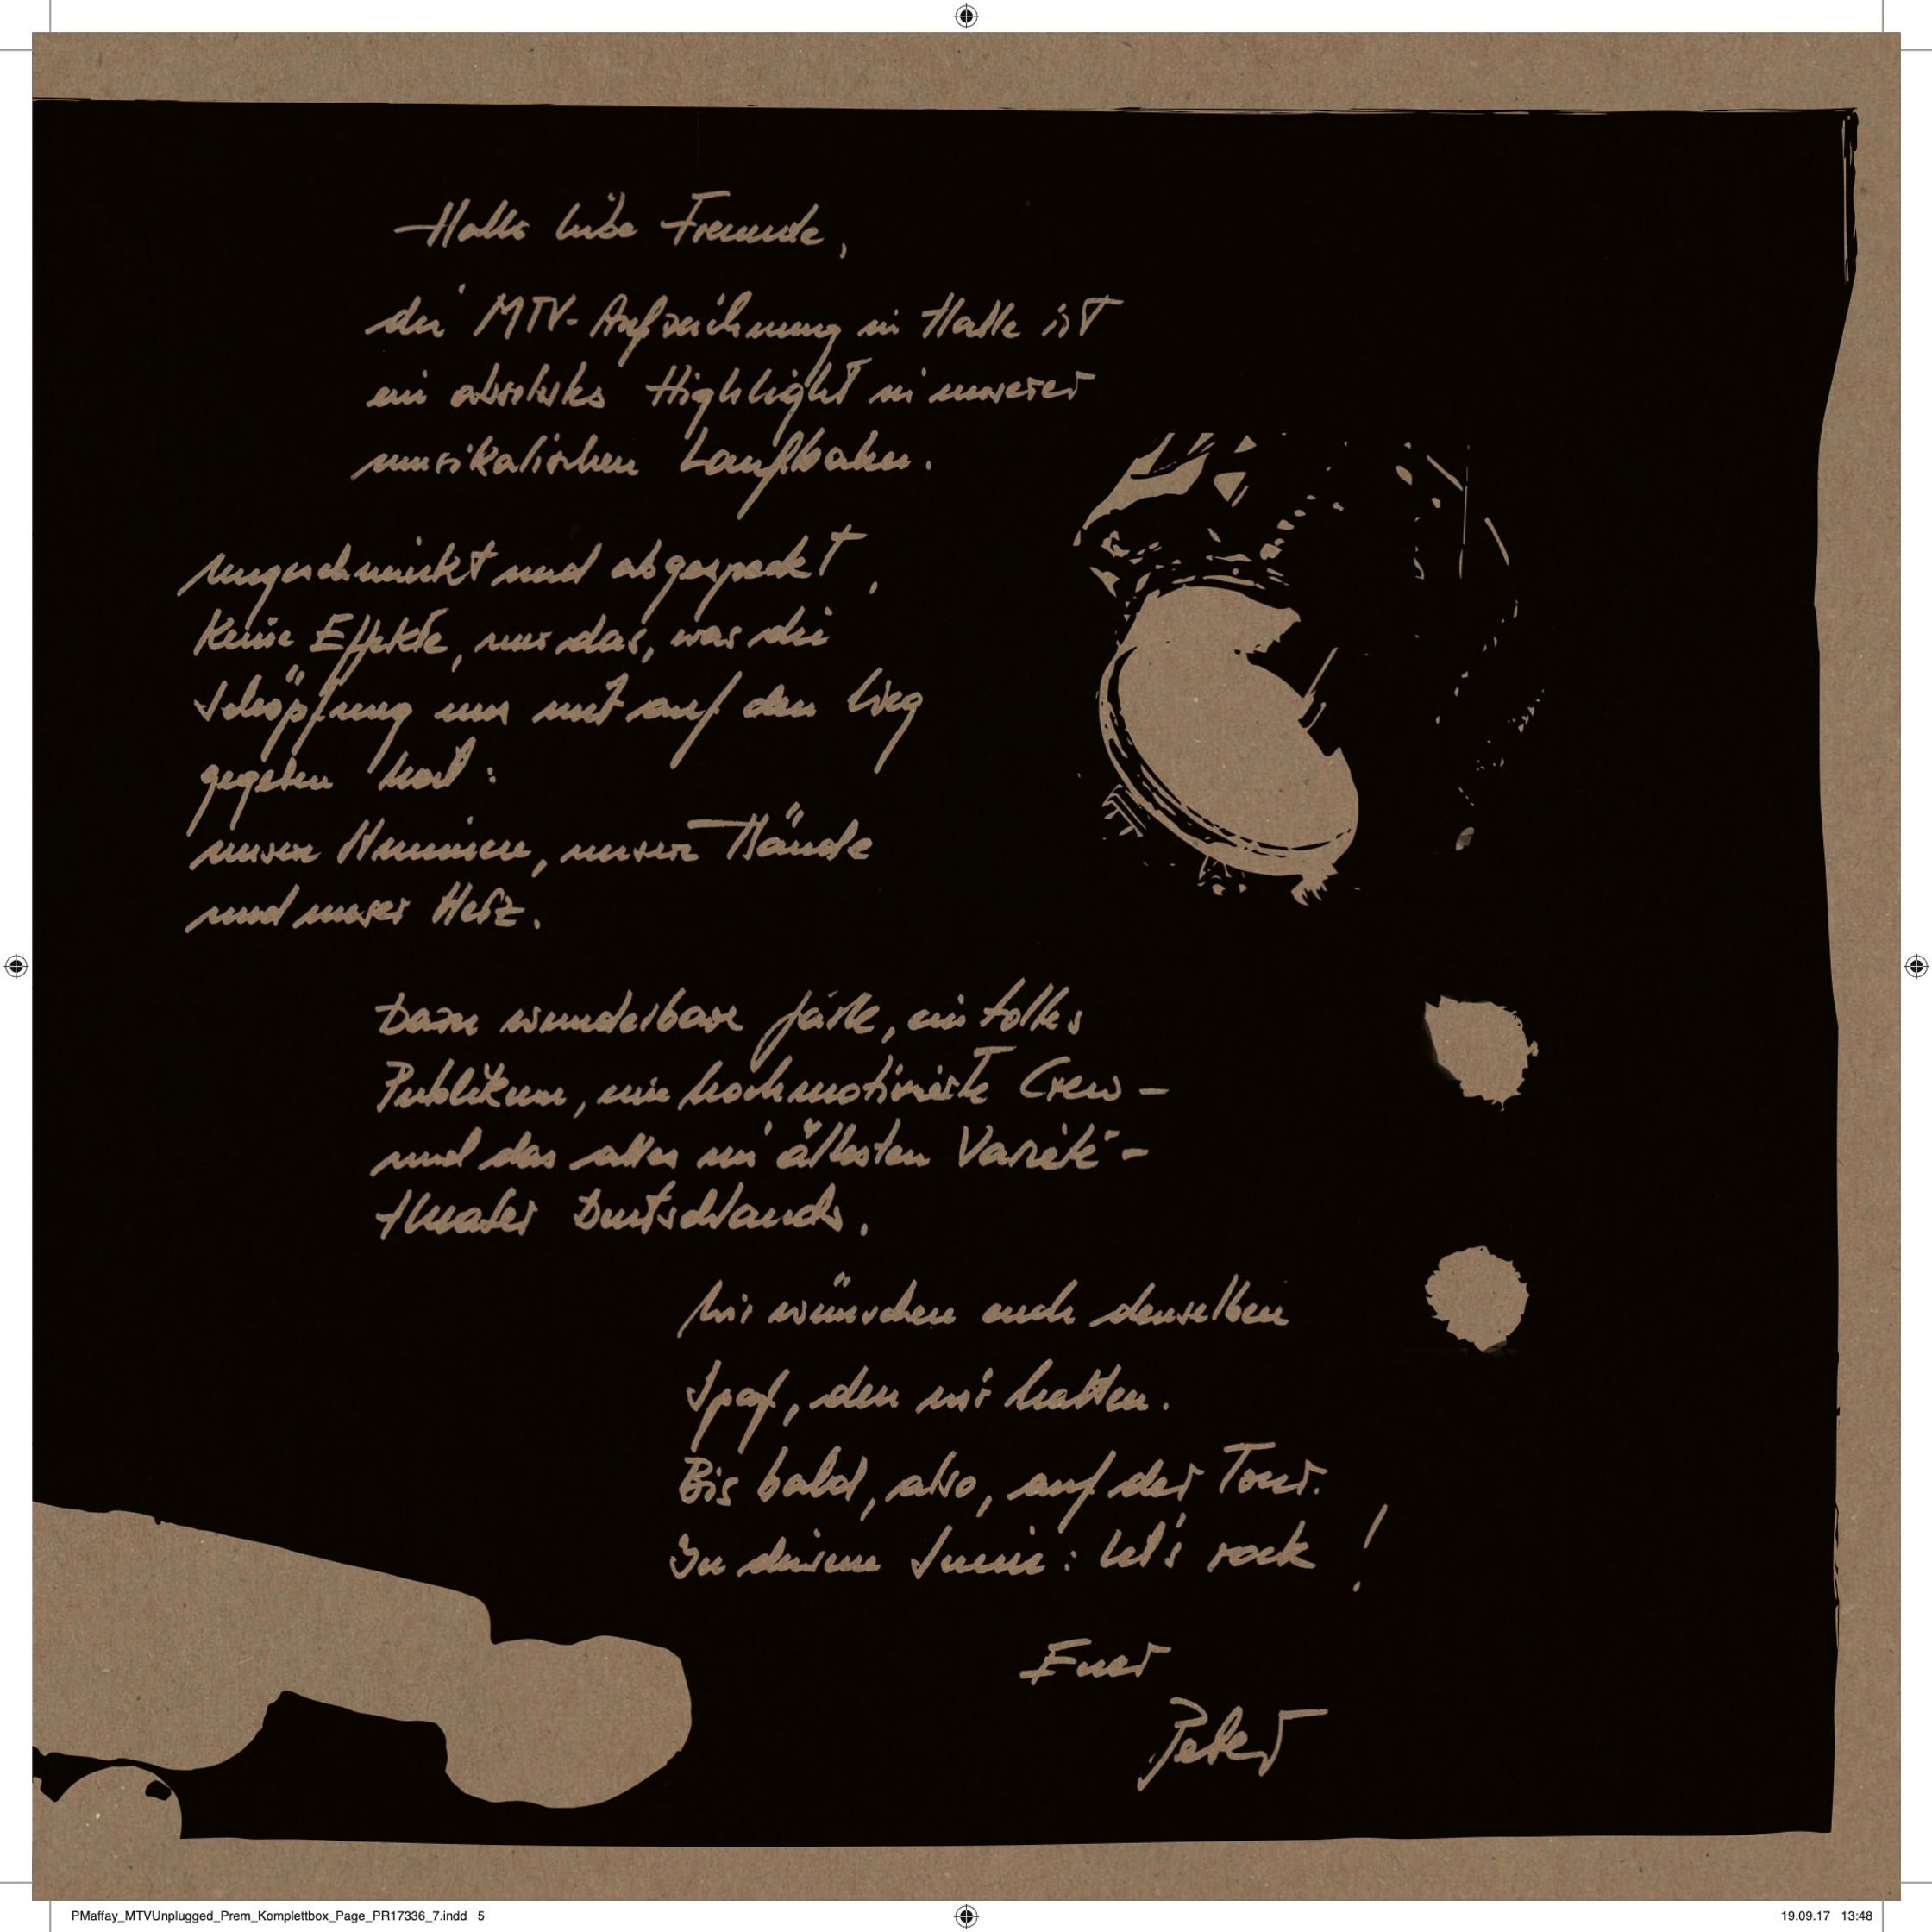 Hallo liebe Freunde,
die MTV-Aufzeichnung in Halle ist
ein absolutes Highlight in unserer
musikalischen Laufbahn.
Ungeschminkt und abgespeckt,
Keine Effekte, nur das, was die
Schöpfung uns mit auf den Weg
gegeben hat:
unsere Stimmen, unsere Hände
und unser Herz.
Dazu wunderbare Gäste, ein tolles
Publikum, eine hochmotivierte Crew -
und das alles im ältesten Varieté-
theater Deutschlands.
Wir wünschen euch denselben
Spaß, den wir hatten.
Bis bald, also, auf der Tour.
In diesem Sinne: let's rock!
Euer
Peter
PMaffay_MTVUnplugged_Prem_Komplettbox_Page_PR17336_7.indd 5
19.09.17 13:48